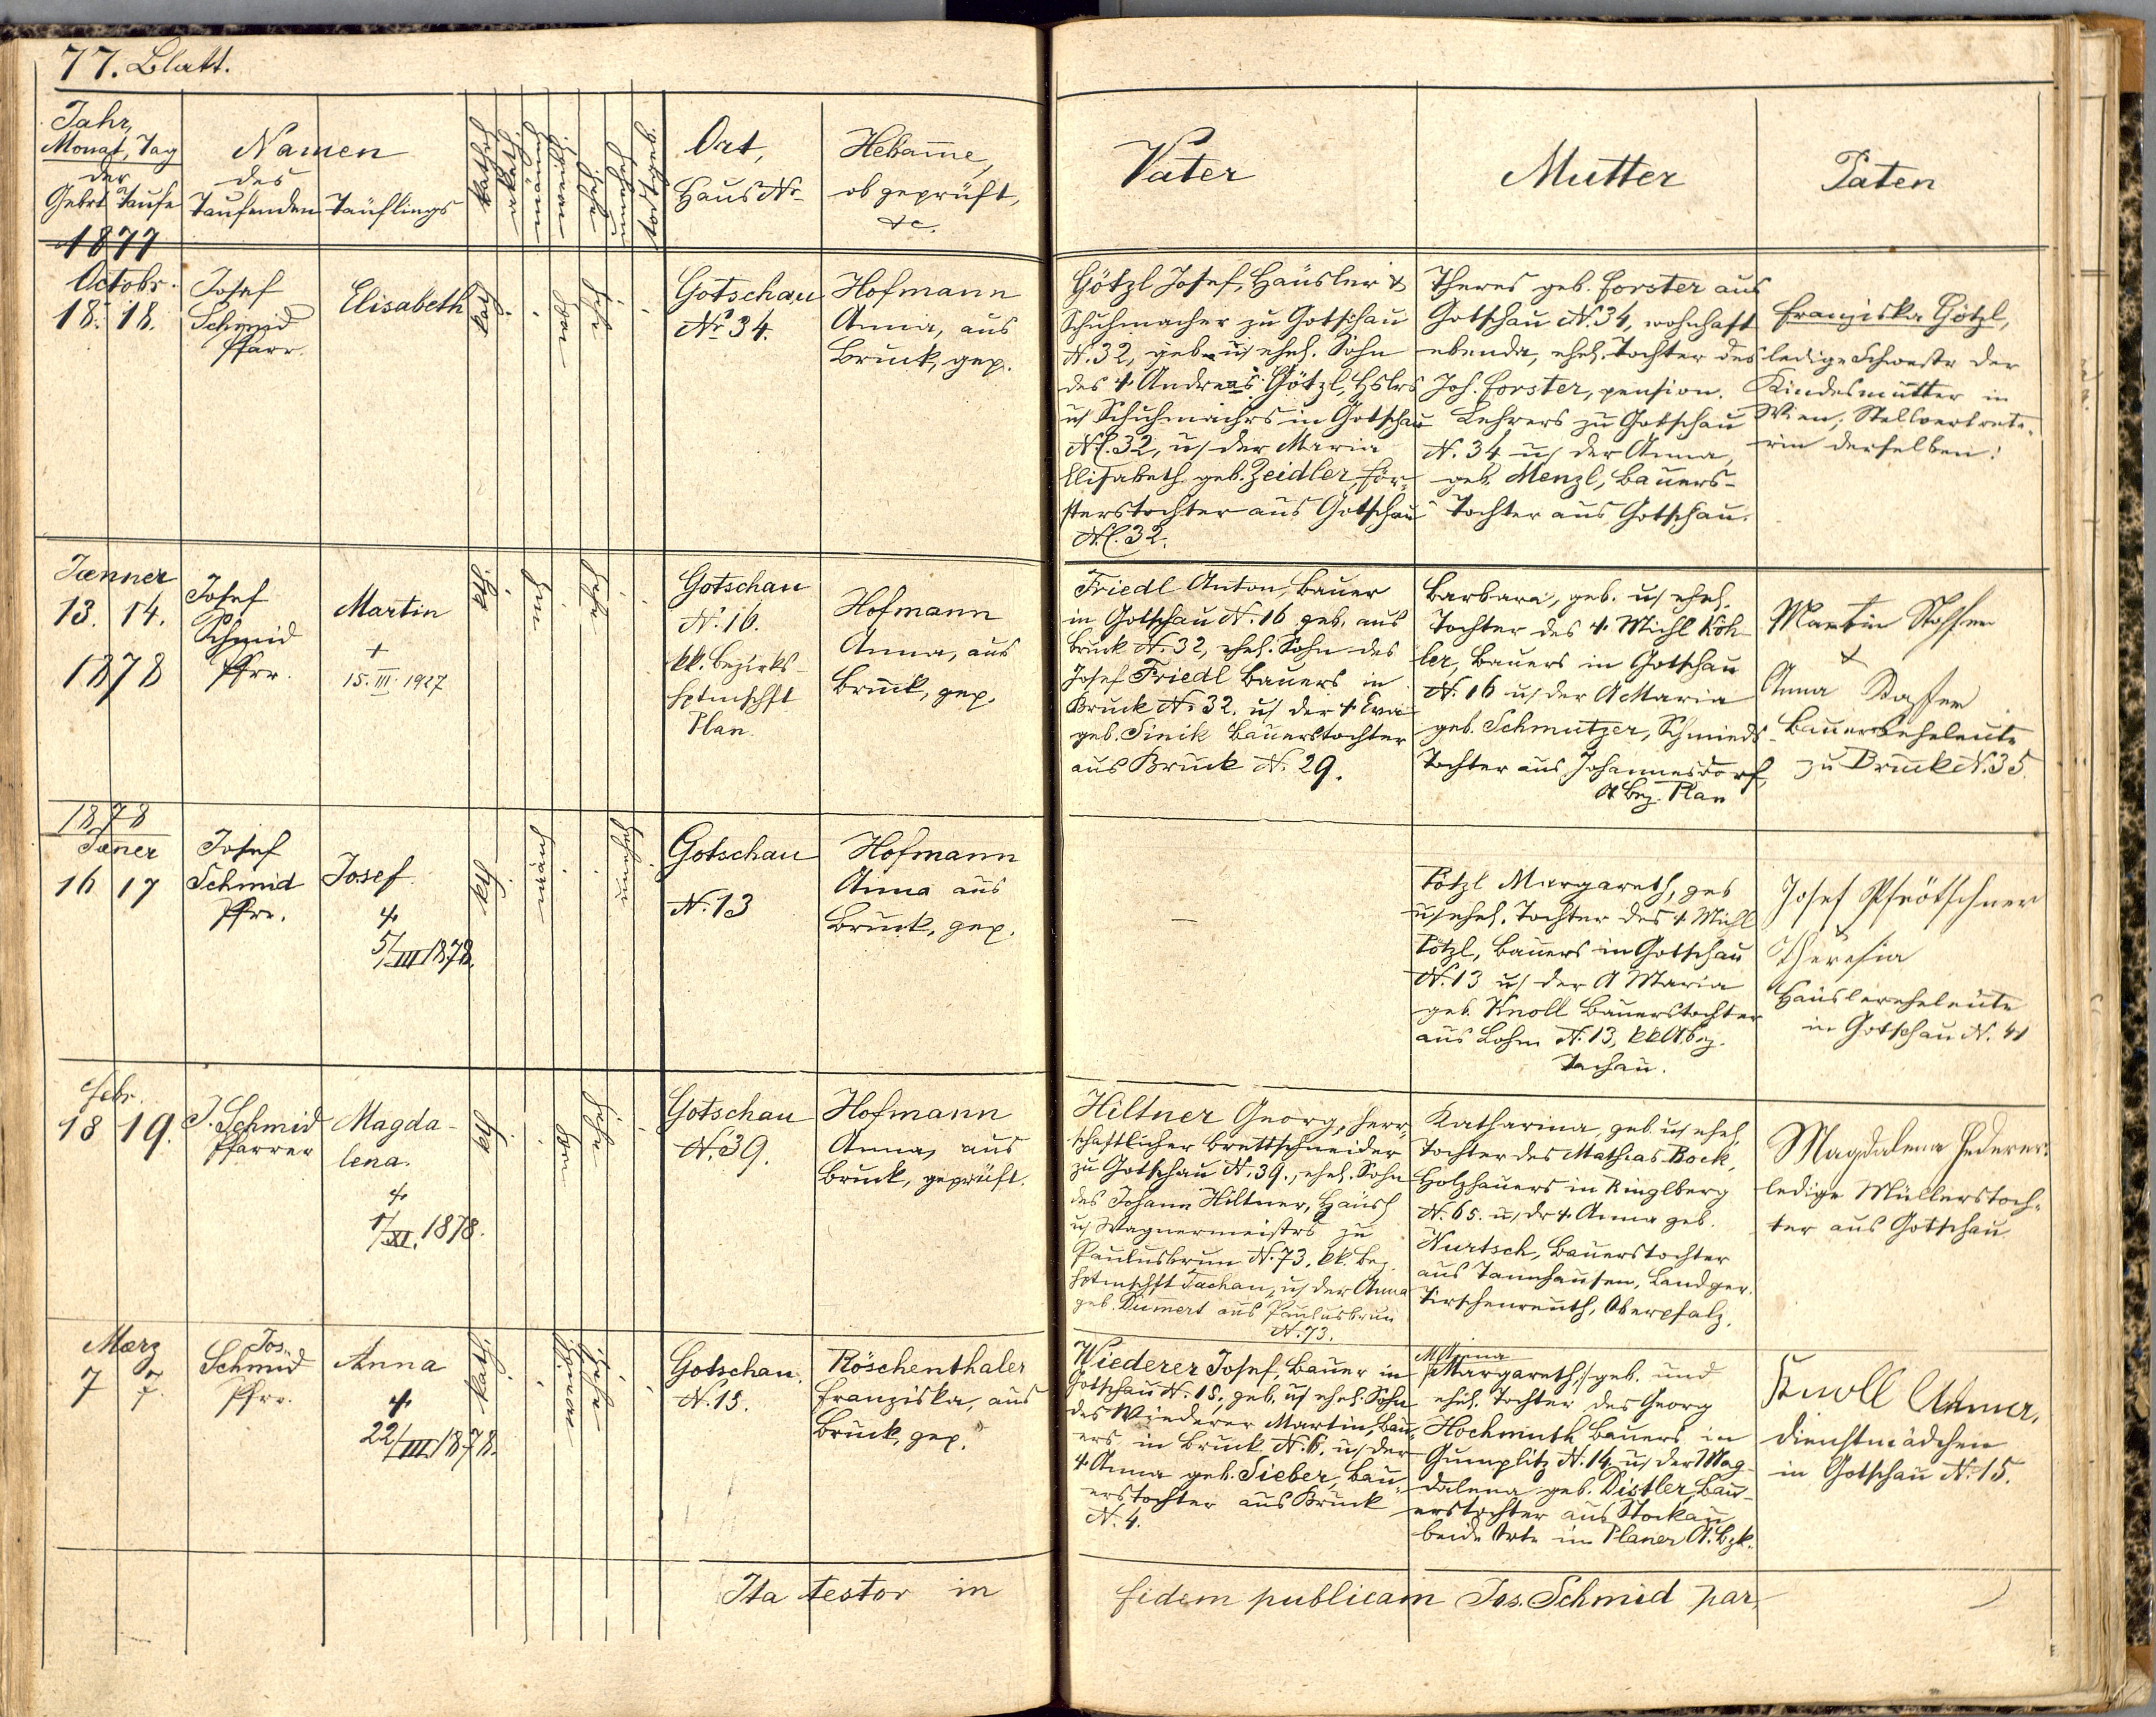 77. Blatt.
Jahr,
Monat, Tag
der
Gebrt Taufe
Namen
des
Taufenden Täuflings
kathol.
akath.
männ
weibl.
ehel.
unehel.
todtgeb.
Ort,
Haus Nr.
Hebam̄e,
ob geprüft,
&c.
Vater
Mutter
Paten
1877
Octobr.
18. 18.
Josef
Schmid
Pfarr.
Elisabeth
Gotschau
Nr. 34.
Hofmann
Anna, aus
Bruck, gep.
Götzl Josef, Häusler &
Schuhmacher zu Gotschau
N. 32, geb. u. ehel. Sohn
des + Andreas Götzl, Hslrs
u. Schuhmachrs in Gotschau
N. 32, u. der Maria
Elisabeth geb. Zeidler, För-
sterstochter aus Gotschau
N. 32.
Theres geb. Forster aus
Gotschau N. 34, wohnhaft
ebenda, ehel. Tochter des
Joh. Forster, pension.
Lehrers zu Gotschau
N. 34 u. der Anna,
geb. Menzl, Bauers-
Tochter aus Gotschau.
Franziska Götzl,
ledige Schwestr der
Kindesmutter in
Wien, Stellvertrete-
rin derselben:
Jænner
13. 14.
1878
Josef
Schmid
Pfrr.
Martin
+
15. III. 1927
Gotschau
N. 16.
kk. Bezirks-
hptmschft
Plan.
Hofmann
Anna, aus
Bruck, gep.
Friedl Anton, Bauer
in Gotschau N. 16 geb. aus
Bruck N. 32, ehel. Sohn des
Josef Friedl Bauers in
Bruck N. 32. u. der + Eva
geb. Sinik Bauerstochter
aus Bruck N. 29.
Barbara, geb. u. ehel.
Tochter des + Michl Köh-
ler, Bauers in Gotschau
N. 16 u. der A Maria
geb. Schmutzer, Schmieds-
Tochter aus Johannesdorf,
A Bez. Plan
Martin
&
Anna
Bauerseheleute
zu Bruck N. 35.
1878
Jæner
16 17
Josef
Schmid
Pfrr.
Josef
+
5/III 1878.
Gotschau
N. 13
Hofmann
Anna aus
Bruck, gep.
—
Pötzl Margareth, geb
u. ehel. Tochter des + Michl
Pötzl, Bauers in Gotschau
N. 13 u. der A Maria
geb. Knoll Bauerstochter
aus Lohm N. 13, kk A. bez.
Tachau.
Josef Pfrötschner
&
Theresia
Häuslereheleute
in Gotschau N. 41
Febr.
18 19.
J. Schmid
Pfarrer
Magda-
lena.
+
1/XI. 1878.
Gotschau
N. 39.
Hofmann
Anna, aus
Bruck, geprüft.
Hiltner Georg, herr-
schaftlicher Brettschneider
zu Gotschau N. 39., ehel. Sohn
des Johann Hiltner, Häusl
u. Wagnermeistrs zu
Paulusbrun N. 73. kk. Bez.
hptmschft Tachau, u. der Anna
geb. Dumert aus Paulusbrun
N. 73.
Katharina, geb. u. ehel.
Tochter des Mathias Bock,
Holzhauers in Ringlberg
N. 65. u. dr + Anna geb.
Nurtsch, Bauerstochter
aus Tannhausen, Landger.
Tirschenreuth, Oberpfalz.
Magdalena Federer
ledige Müllerstoch-
ter aus Gotschau
Mærz
7 7.
Jos.
Schmid
Pfrr.
Anna
+
22/III 1878.
Gotschau.
N. 15.
Röschenthaler
Franziska, aus
Bruck, gep.
Wiederer Josef, Bauer in
Gotschau N. 15, geb. u. ehel. Sohn
des Wiederer Martin, Bau-
ers in Bruck N. 6. u. der
+ Anna geb. Sieber, Bau-
erstochter aus Bruck
N. 4.
M Anna
/:Margareth:/ geb. und
ehel. Tochter des Georg
Hochmuth Bauers in
Gumplitz N. 14 u. der Mag-
dalena geb. Distler, Bau-
erstochter aus Stockau
beide Orte im Planer A. Bzk.
Knoll Anna,
Dienstmädchen
in Gotschau N. 15.
Ita testor in fidem publicam Jos. Schmid par.